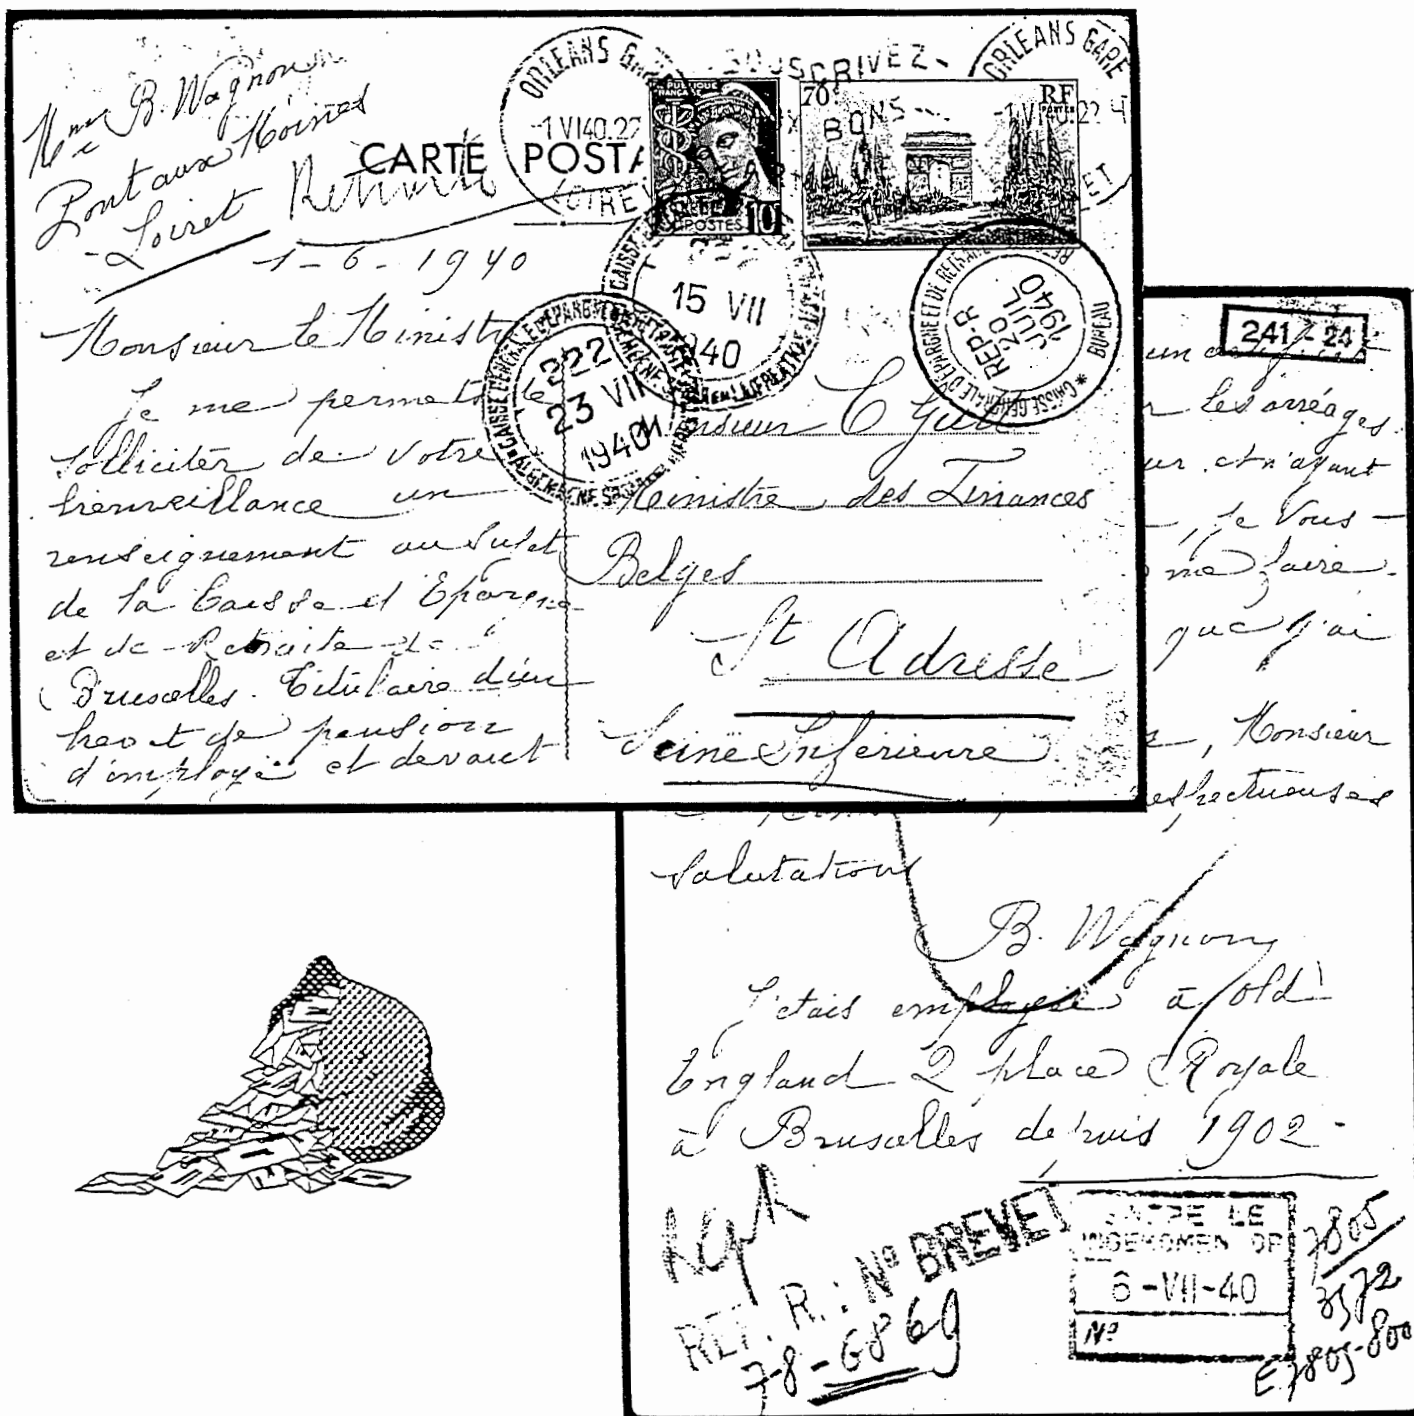 Mme B. Wagnon
Pont aux Moines
Loiret
Retraite
CARTE POSTA
1-6-1940
ORLEANS GARE
-1 VI 40.22
LOIRET
SOUSCRIVEZ
AUX BONS
AR
ORLEANS GARE
-1 VI 40.22 H
ET
PUBLIQUE
FRANÇAISE
POSTES 10
70c RF
POSTES
15 VII
940
222
23 VII
1940
CAISSE GENERALE D'EPARGNE ET DE RETRAITE
REP-R
20
JUIL
1940
BUREAU
Monsieur le Minist
Je me permets de
solliciter de votre
bienveillance un
renseignement au sujet
de la Caisse d'Epargne
et de Retraite de
Bruxelles. Titulaire d'un
brevet de pension
d'employé et devant
nsieur C Gutt
Ministre des Finances
Belges
St Adresse
Seine Inférieure
241 - 24
un
r les arréages
ur et n'ayant
, je Vous
me faire
que j'ai
, Monsieur
espectueuses
Salutations
B. Wagnon
J'étais employée à Old
England 2 place Royale
à Bruxelles depuis 1902-
REF. R.: No BREVET
78-6869
ENTRE LE
INGEKOMEN OP
6-VII-40
No
7805
3572
E7805-800